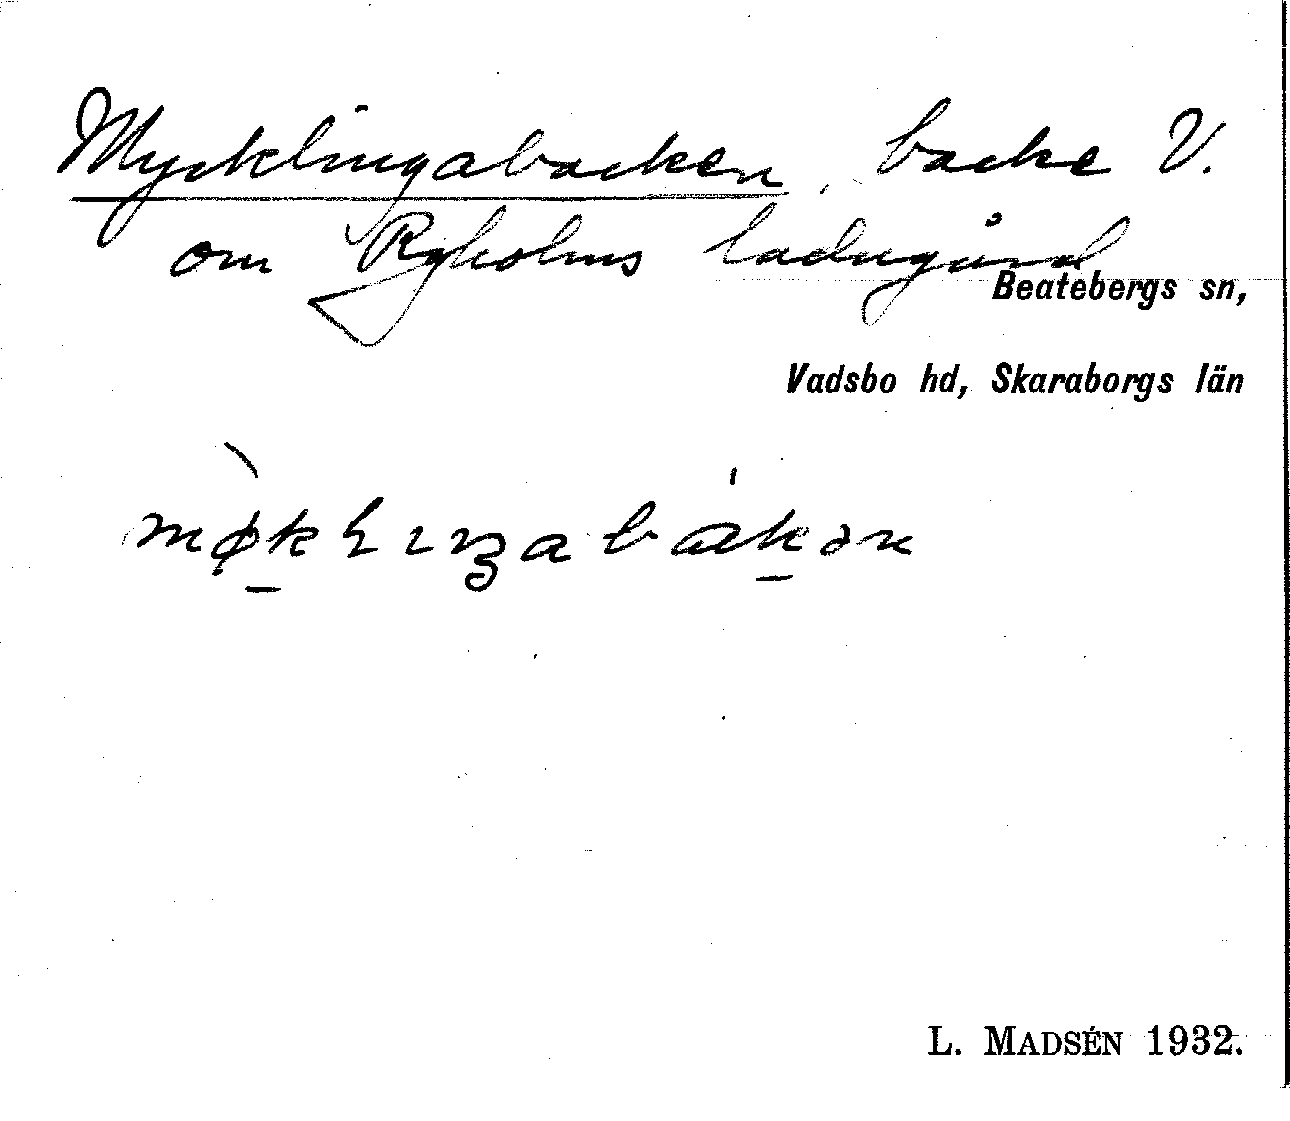 Mycklingabacken, backe V.
om Ryholms ladugård
Beatebergs sn,
Vadsbo hd, Skaraborgs län
L. MADSÉN 1932.